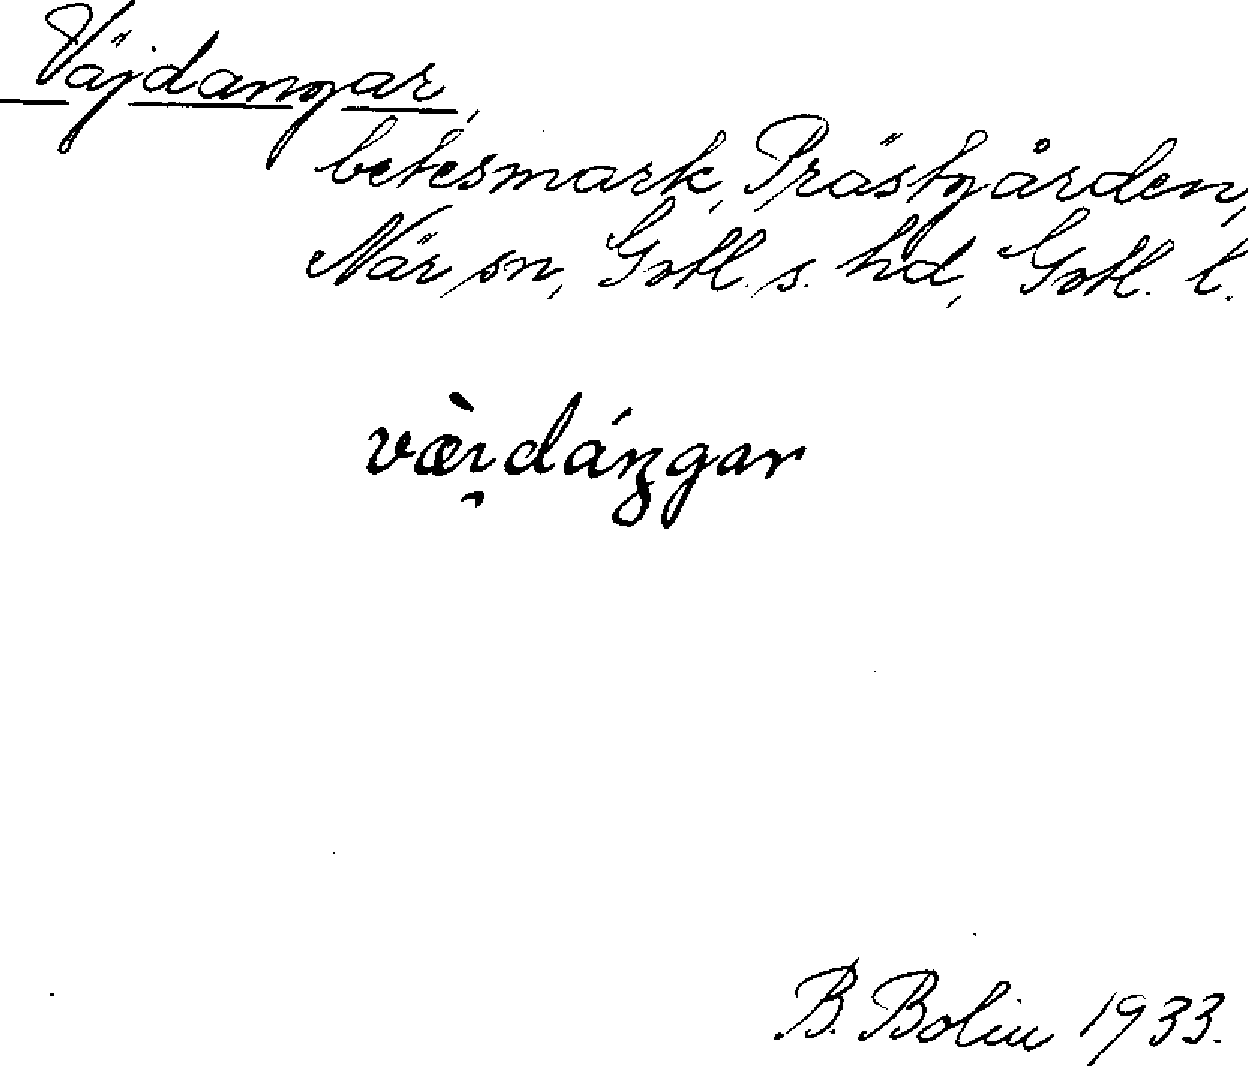 Väjdangar,
betesmark, Prästgården,
När sn, Gotl. s. hd, Gotl. l.
væ̀ı̯dáŋgar
B. Bolin 1933.